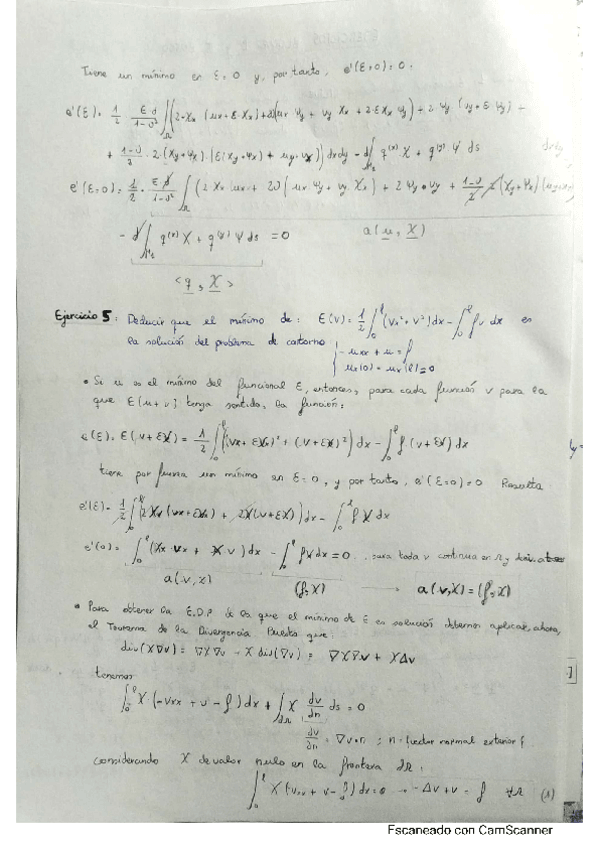 Tiene un mínimo en ε=0 y, por tanto, e'(ε=0)=0.
e'(ε)= 1/2 · E·d/1-ν² ∫∫(2·Xx (ux+ε·Xx)+2ν(ux ψy + vy Xx + 2·ε Xx ψy) + 2 ψy (vy+ε·ψy) +
+ 1-ν/2 · 2·(Xy+ψx)·(ε(Xy+ψx)+ uy+vx)) dxdy - d∫ q⁽ˣ⁾·X + q⁽ʸ⁾·ψ ds
e'(ε=0)= 1/2 · E d/1-ν² ∫∫ (2 Xx ux + 2ν(ux·ψy + vy Xx) + 2ψy·vy + 1-ν/2 2(Xy+ψx)
- d∫ q⁽ˣ⁾X + q⁽ʸ⁾ψ ds =0 a(u,X)
<q, X>
Ejercicio 5: Deducir que el mínimo de: E(v)= 1/2 ∫₀ˡ (vx²+v²)dx - ∫₀ˡ f v dx es
la solución del problema de contorno { -uxx + u = f
ux(0)=ux(l)=0
• Si u es el mínimo del funcional E, entonces, para cada función v para la
que E(u+v) tenga sentido, la función:
e(ε)= E(v+εX)= 1/2 ∫₀ˡ ((vx+εXx)²+(v+εX)²)dx - ∫₀ˡ f(v+εX)dx
tiene por fuerza un mínimo en ε=0, y por tanto, e'(ε=0)=0 Resulta
e'(ε)= 1/2 ∫₀ˡ (2Xx(vx+εXx) + 2X(v+εX))dx - ∫₀ˡ f X dx
e'(0)= ∫₀ˡ (Xx vx + X v)dx - ∫₀ˡ fX dx = 0 para toda v continua en Ω y
a(v,X) (f,X) → a(v,X)=(f,X)
• Para obtener la E.D.P de la que el mínimo de E es solución debemos aplicar, ahora,
el Teorema de la Divergencia. Puesto que:
div(X∇v)= ∇X∇v + X div(∇v) = ∇X∇v + XΔv
tenemos
∫₀ˡ X·(-vxx + v - f)dx + ∫∂Ω X dv/dn ds = 0
dv/dn = ∇v·n ; n (vector normal exterior)
considerando X de valor nulo en la frontera ∂Ω:
∫₀ˡ X(vxx + v - f)dx=0 → -Δv+v = f ∀Ω (1)
Escaneado con CamScanner